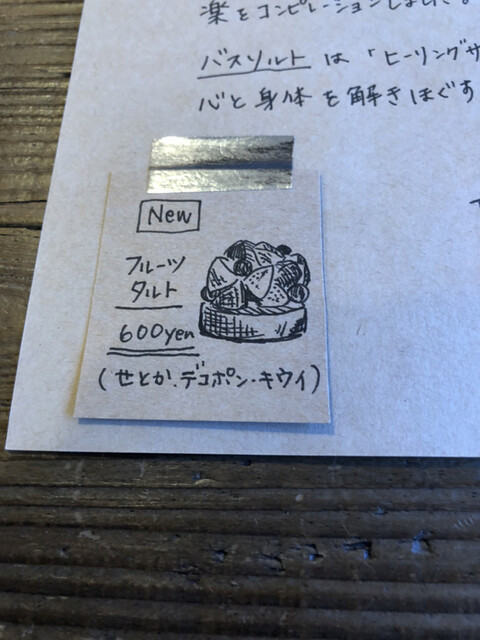 楽をコンピレーションしました。
バスソルト は「ヒーリングサ
心と身体を解きほぐす
New
フルーツ
タルト
600yen
(せとか.デコポン・キウイ)